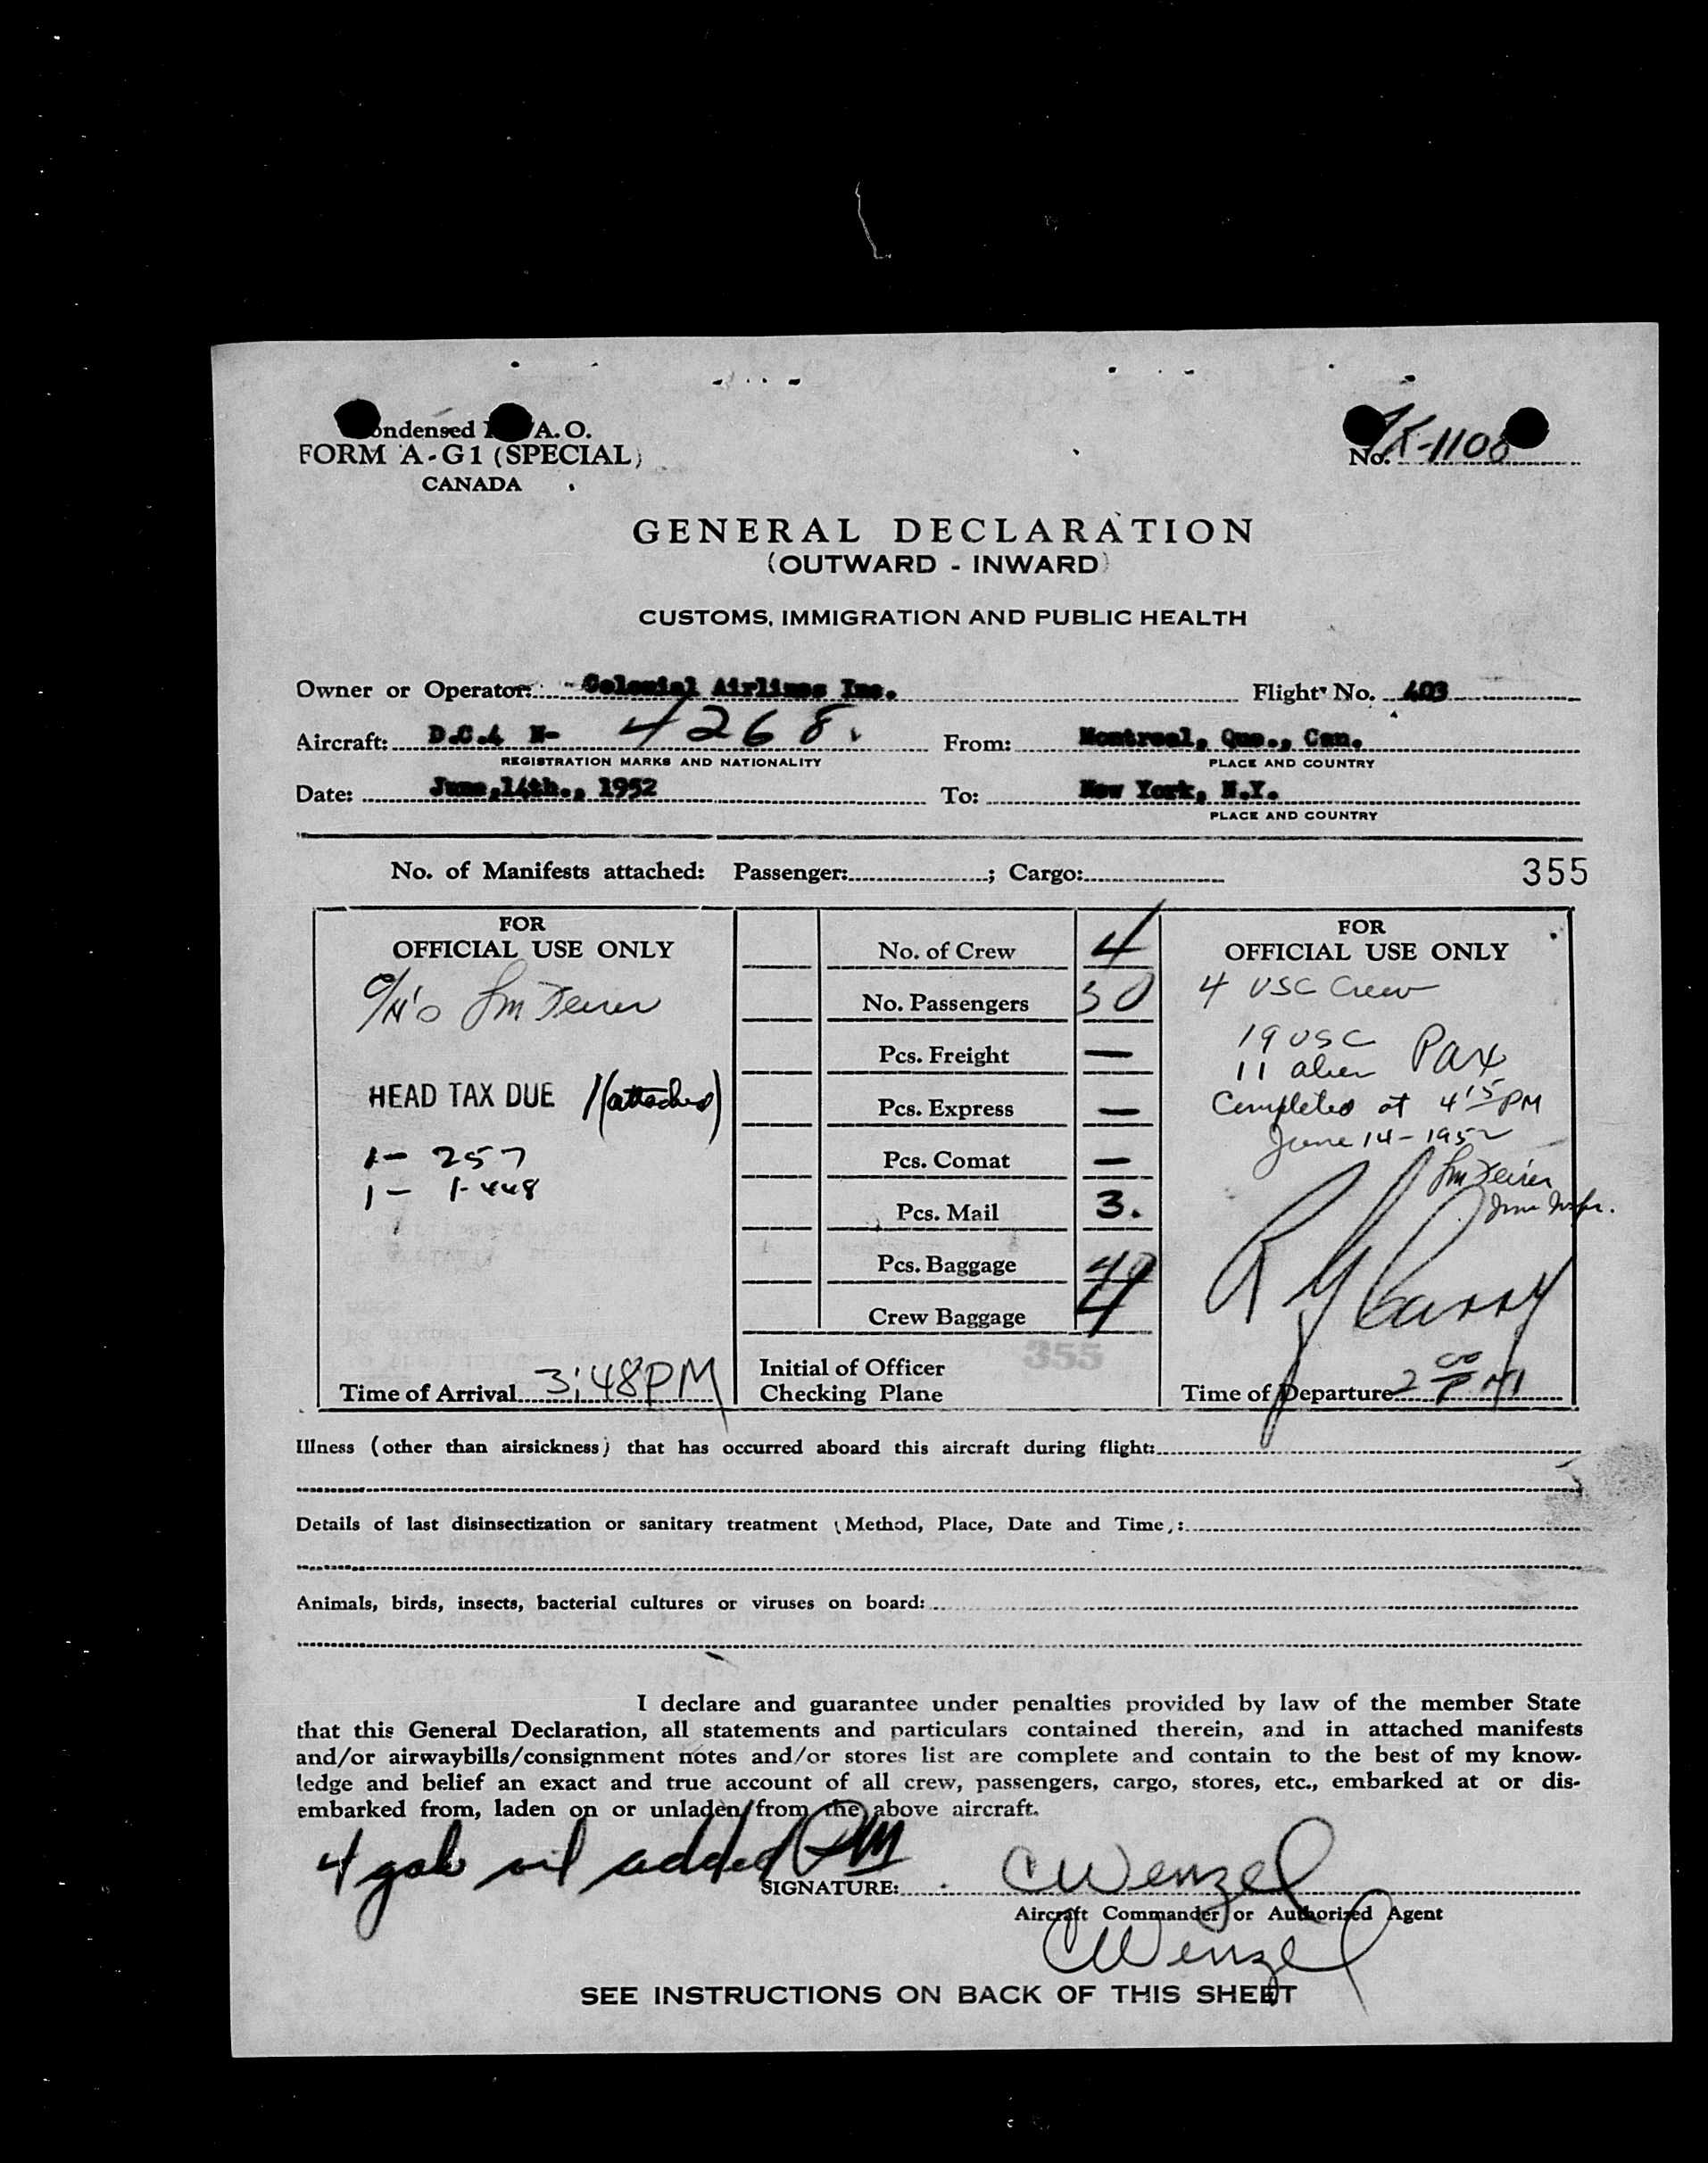 ondensed A.O.
FORM A-G1 (SPECIAL)
CANADA
No. K-1108
GENERAL DECLARATION
(OUTWARD - INWARD)
CUSTOMS, IMMIGRATION AND PUBLIC HEALTH
Owner or Operator: Colonial Airlines Inc. Flight No. 403
Aircraft: D.C.4 N- 4268. From: Montreal, Que., Can.
REGISTRATION MARKS AND NATIONALITY PLACE AND COUNTRY
Date: June,14th., 1952 To: New York, N.Y.
PLACE AND COUNTRY
No. of Manifests attached: Passenger: ; Cargo: 355
FOR
OFFICIAL USE ONLY
HEAD TAX DUE 1 (attached)
1 - 257
1 - 1-448
Time of Arrival 3:48PM
No. of Crew 4
No. Passengers 30
Pcs. Freight —
Pcs. Express —
Pcs. Comat —
Pcs. Mail 3.
Pcs. Baggage 49
Crew Baggage 4
355
Initial of Officer
Checking Plane
FOR
OFFICIAL USE ONLY
4 USC Crew
19 USC
11 alien Pax
Completed at 4 15 PM
June 14-1952
Time of Departure 2 00 PM
Illness (other than airsickness) that has occurred aboard this aircraft during flight:
Details of last disinsectization or sanitary treatment (Method, Place, Date and Time):
Animals, birds, insects, bacterial cultures or viruses on board:
I declare and guarantee under penalties provided by law of the member State
that this General Declaration, all statements and particulars contained therein, and in attached manifests
and/or airwaybills/consignment notes and/or stores list are complete and contain to the best of my know-
ledge and belief an exact and true account of all crew, passengers, cargo, stores, etc., embarked at or dis-
embarked from, laden on or unladen from the above aircraft.
4 gals oil added
SIGNATURE: C Wenzel
Aircraft Commander or Authorized Agent
C Wenzel
SEE INSTRUCTIONS ON BACK OF THIS SHEET